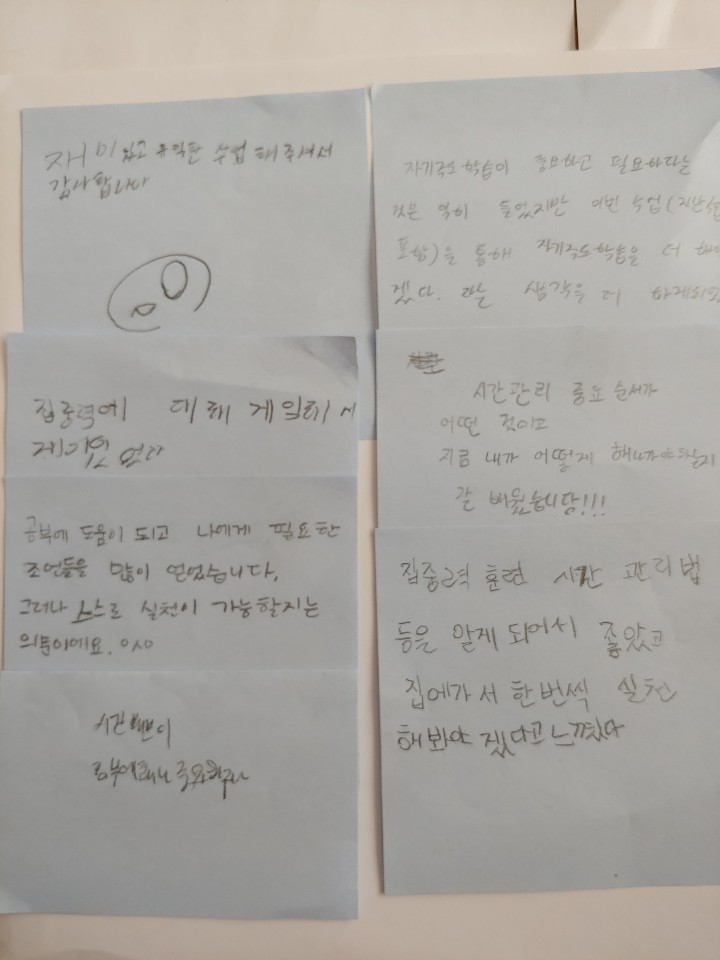 재미있고 유익한 수업 해주셔서
감사합니다
집중력에 대해 게임해서
재미있었다
공부에 도움이 되고 나에게 필요한
조언들을 많이 얻었습니다.
그러나 스스로 실천이 가능할지는
의문이에요. ㅇㅅㅇ
시간
자기주도학습이 중요하고 필요하다는
것은 익히 들었지만 이번 수업(지난
포함)을 통해 자기주도학습을 더 해야
겠다. 라는 생각을 더 하게되
시간관리 중요 순서가
어떤 것이고
지금 내가 어떻게 해나가야 되는지
잘 배웠습니당!!!
집중력 훈련 시간 관리법
등을 알게 되어서 좋았고
집에가서 한번씩 실천
해봐야 겠다고 느꼈다